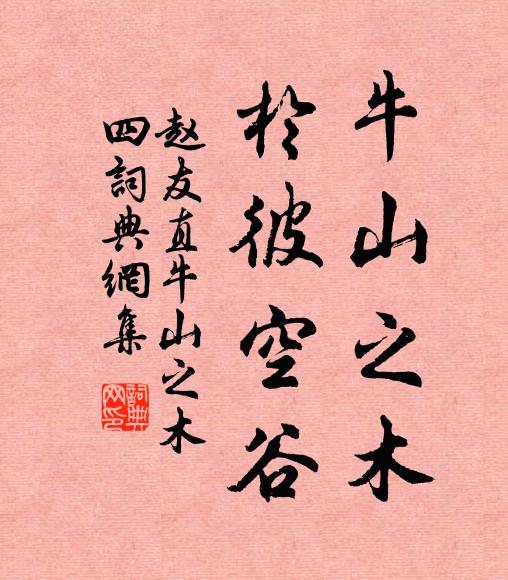 牛山之木
於彼空谷
赵友直牛山之木
四詞典網集
詞典
网印